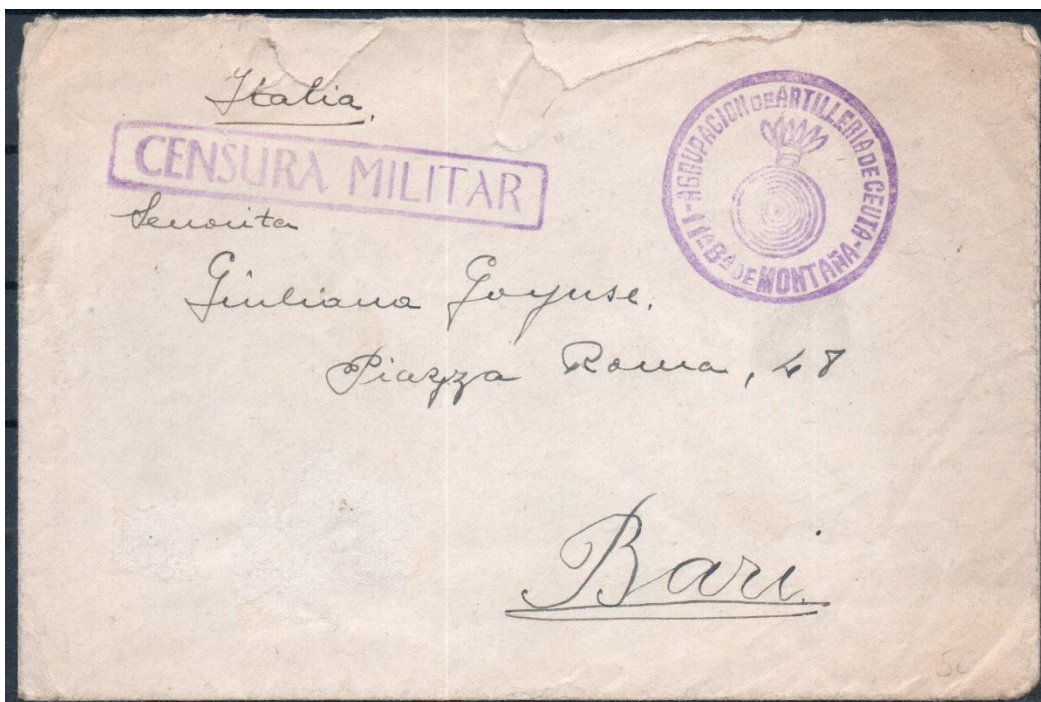 Italia.
CENSURA MILITAR
AGRUPACION DE ARTILLERIA DE CEUTA
11ª Bª DE MONTAÑA
Señorita
Giuliana
Piazza Roma, 48
Bari.
50